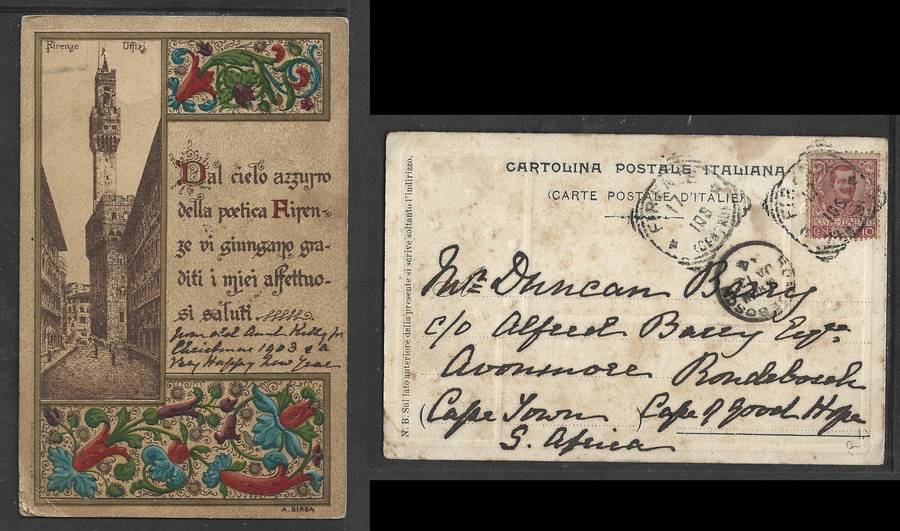 Firenze Uffizi
Dal cielo azzurro
della poetica Firen-
ze vi giungano gra-
diti i miei affettuo-
si saluti
Your old Aunt Kitty for
Christmas 1903 & a
Very Happy New Year
A. BIRGA
CARTOLINA POSTALE ITALIANA
(CARTE POSTALE D'ITALIE)
N. B. Sul lato anteriore della presente si scrive soltanto l'indirizzo.
FIR
(CENTRO)
FIR
CENT. 10
Mr. Duncan Barry
c/o Alfred Barry Esqre.
Avonmore Rondebosch
(Cape Town Cape of Good Hope
S. Africa